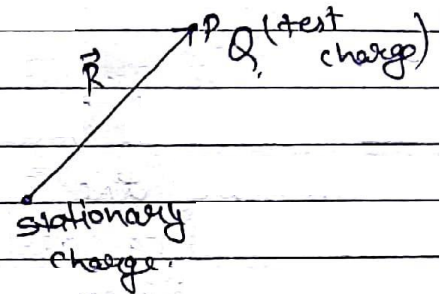 P Q (test
charge)
R
stationary
charge.